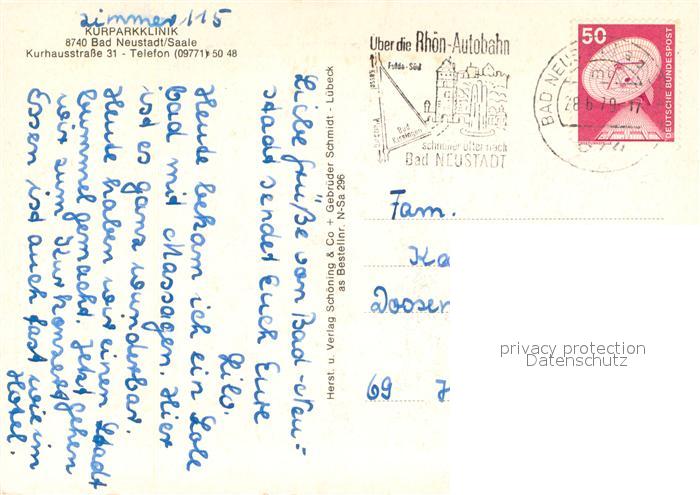 zimmer 115
KURPARKKLINIK
8740 Bad Neustadt/Saale
Kurhausstraße 31 - Telefon (09771) 50 48
Liebe Grüße von Bad-Neu-
stadt sendet Euch Eure
Lilo.
Heute bekam ich ein Sole
bad mit Massagen. Hier
ist es ganz wunderbar.
Heute haben wir einen Stadt
bummel gemacht. Jetzt gehen
wir zum Kurkonzert.
Essen ist auch fast wie im
Hotel.
Herst. u. Verlag Schöning & Co + Gebrüder Schmidt - Lübeck
as Bestellnr. N-Sa 296
Über die Rhön-Autobahn
Fulda-Süd
Kassel
Bad
Kissingen
schneller öfter nach
Bad NEUSTADT
BAD NEUS
28.6.79-17
50
DEUTSCHE BUNDESPOST
Fam.
Ka
Dossen
69 H
privacy protection
Datenschutz